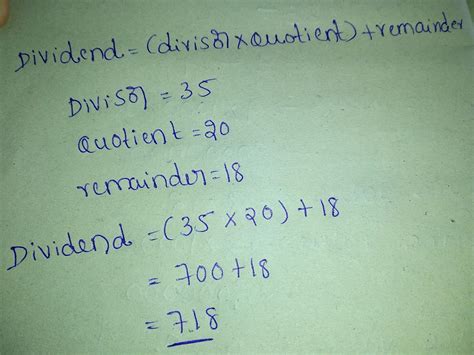 Dividend = (divisor × Quotient) + remainder
Divisor = 35
Quotient = 20
remainder = 18
Dividend = (35 × 20) + 18
= 700 + 18
= 718